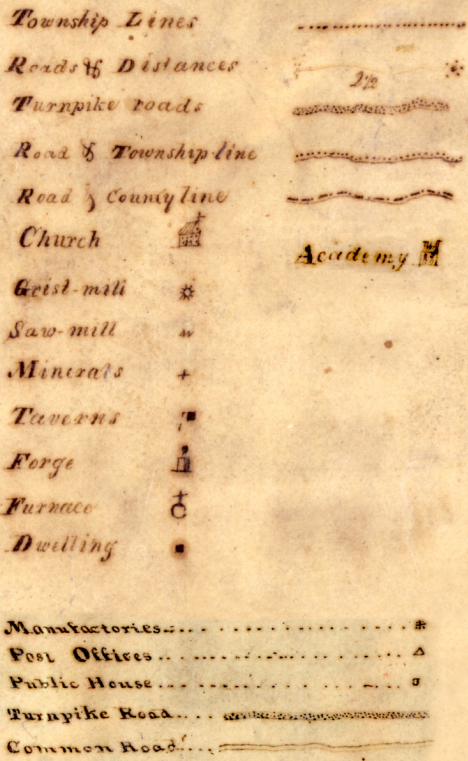 Township Lines
Roads & Distances
2½
Turnpike roads
Road & Township line
Road & County line
Church
Academy
Grist-mill
Saw-mill
Minerals
Taverns
Forge
Furnace
Dwelling
Manufactories
Post Offices
Public House
Turnpike Road
Common Road